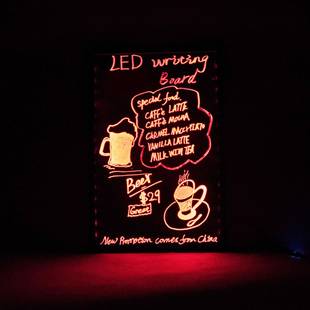 LED writing
Board
special food.
CAFFE LATTE
CAFFE MOCHA
CARMEL MACCHIATO
VANILLA LATTE
MILK WITH TEA
Beer
$29
Great
New Promotion comes from China